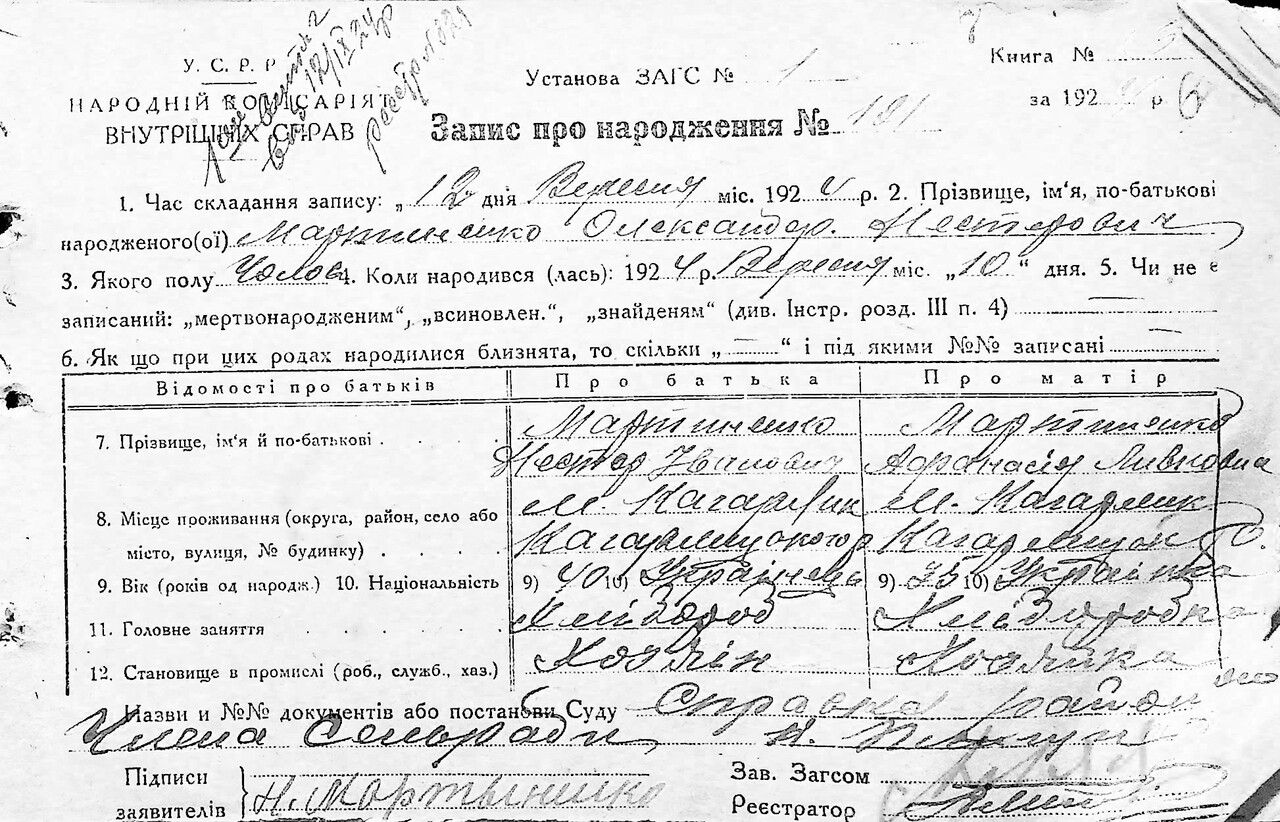 У. С. Р. Р
НАРОДНІЙ КОМІСАРІЯТ
ВНУТРІШНІХ СПРАВ
12/IX 24р
Установа ЗАГС № 1
Книга №
за 192 р 6
Запис про народження № 181
1. Час складання запису: „ 12 дня Вересня міс. 1924 р. 2. Прізвище, ім‘я, по-батькові
народженого(ої) Мартиненко Олександер Нестерович
3. Якого полу Чолов 4. Коли народився (лась): 1924 р. Вересня міс. „10“ дня. 5. Чи не є
записаний: „мертвонародженим“, „всиновлен.“, „знайденям“ (див. Інстр. розд. III п. 4) —
6. Як що при цих родах народилися близнята, то скільки „ — “ і під якими №№ записані —
Відомості про батьків Про батька Про матір
7. Прізвище, ім‘я й по-батькові Мартиненко Мартиненко
Нестор Іванович Афанасія
8. Місце проживання (округа, район, село або М. Кагарлик М. Кагарлик
місто, вулиця, № будинку) Кагарлицького р Кагарлицьк
9. Вік (років од народж.) 10. Національність 9) 40 10) Українець 9) 35 10) Українка
11. Головне заняття Хлібороб Хліборобка
12. Становище в промислі (роб., служб., хаз.) Хозяїн Хозяйка
Назви и №№ документів або постанови Суду Справка район
Члена Сельради
Підписи
заявителів Н. Мартыненко
Зав. Загсом
Реєстратор